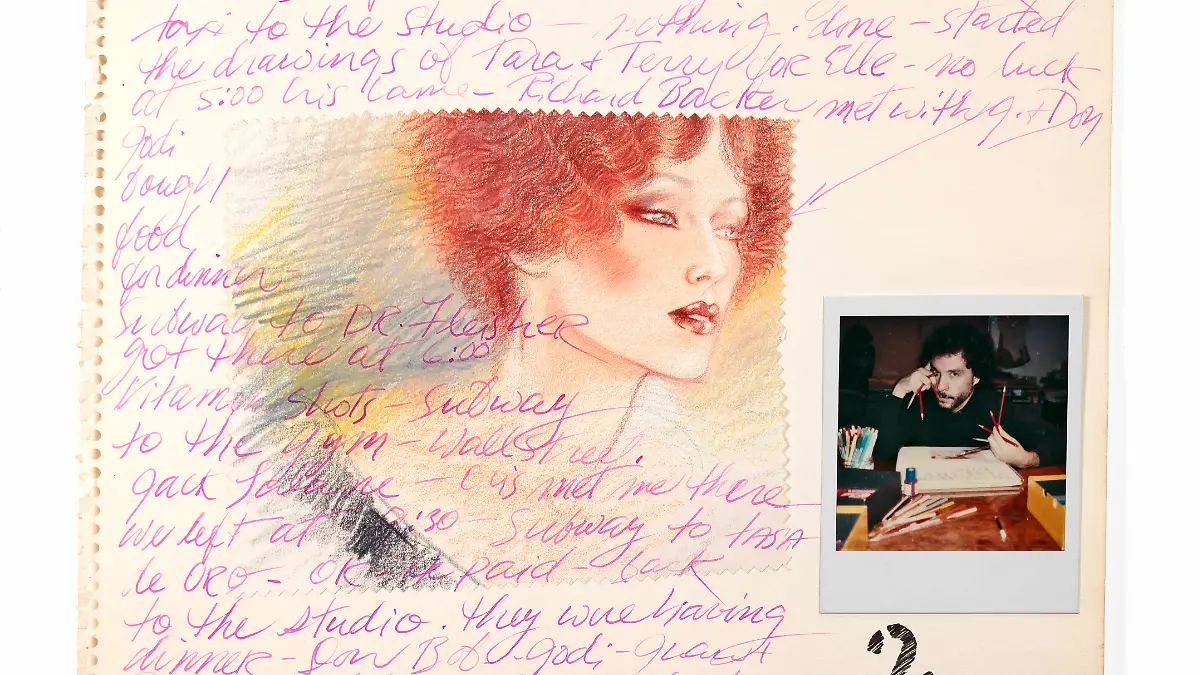 taxi to the studio – nothing done – started
the drawings of Tara & Terry for Elle – no luck
at 5:00 Cris came – Richard Backer met with g. + Don
Godi
bought
food
for dinner –
Subway to DR. Fleisher
got there at 6:00
Vitamin shots – Subway
to the gym – Wall Street.
Jack – Cris met me there
we left at :30 – Subway to TASA
de ORO – paid – back
to the studio. they were having
dinner – Don Bob – godi –
2